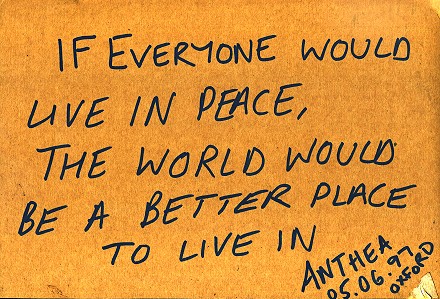 IF EVERYONE WOULD
LIVE IN PEACE,
THE WORLD WOULD
BE A BETTER PLACE
TO LIVE IN
ANTHEA
05.06.97
OXFORD